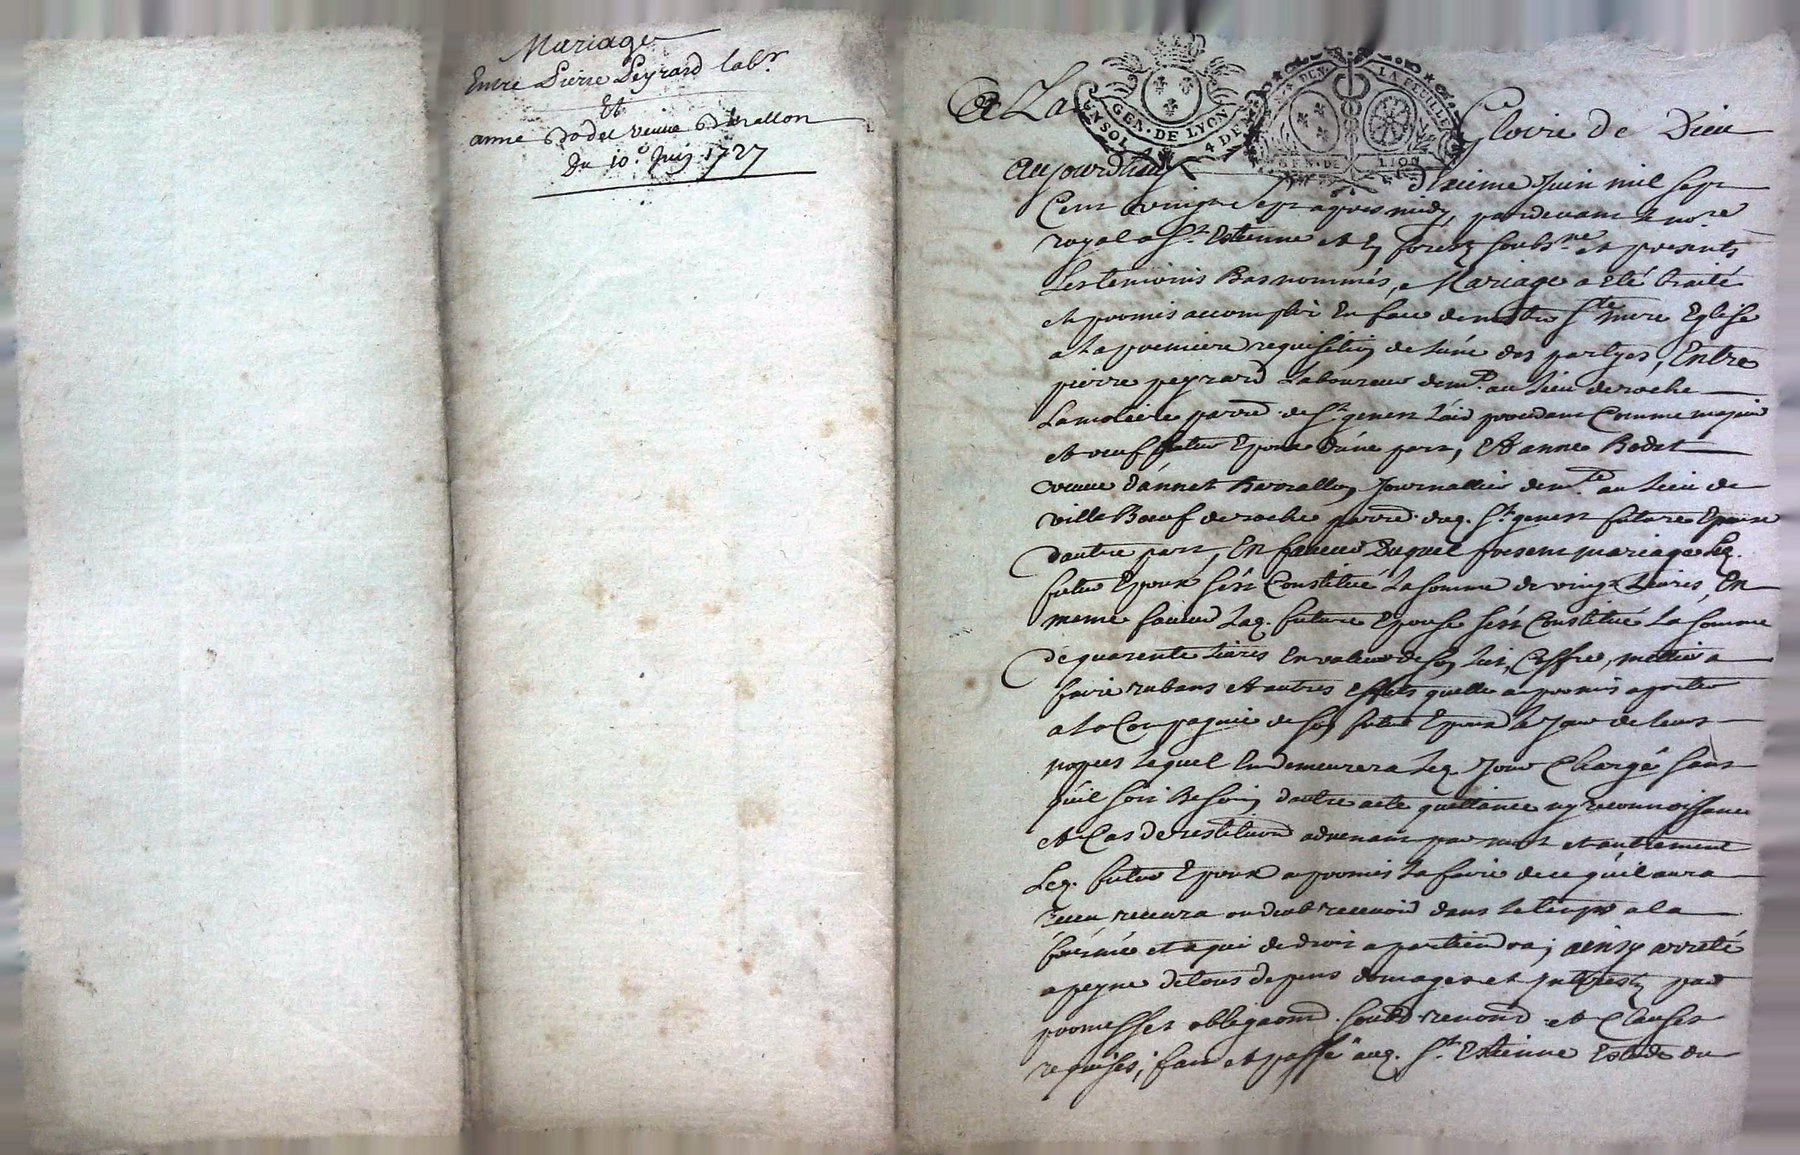 Mariage
Entre Pierre Peyrard labr
Et
anne Bodet veuve Barallon
Du 10e Juin 1727
A La Gloire de Dieu
GEN. DE LYON
4 DEN
LA FEUILLE
GEN. DE LION
aujourdhuy dixieme Juin mil sept
Cent vingt sept apres midy, pardevant le nore
royal a St Estienne et En forest soubsne et presents
Les temoins Bas nommés, Mariage a eté traité
et promis accomplir En face de nostre Ste mere Eglise
a La premiere requisition de lune des partyes, Entre
pierre peyrard Laboureur demt au Lieu de roche
La moliere parre de St genest Lerd procedant Comme majeur
et veuf futur Epoux d'une part, Et anne Bodet
veuve d'annet Barrallon Journallier demte au Lieu de
ville Bœuf de roche parre dud. St genest future Epouse
d'autre part, En faveur Duquel present mariage Led.
futur Epoux s'est Constitué La somme de vingt Livres, En
meme faveur Lad. future Epouse s'est Constitué La somme
de quarente Livres En valeur de son Lict, Coffre, mettier a
faire rubans et autres effets quelle a promis aporter
a La Compagnie de son futur Epoux Le Jour de leurs
nopces Lequel En demeurera Led. Jour Chargé sans
quil soit Besoin dautre acte quittance ny reconnoissance
et Cas de restitution advenant par mort et autrement
Led. futur Epoux a promis La faire de ce qu'il aura
receu recevra ou deub recevoir dans Le temps a la
forme et a qui de droit apartiendra; ainsy arreté
a peyne de tous depens domages et Interests par
promesses obligaons soubd renond et Clauses
requises; fait et passé aud. St Estienne Estude du